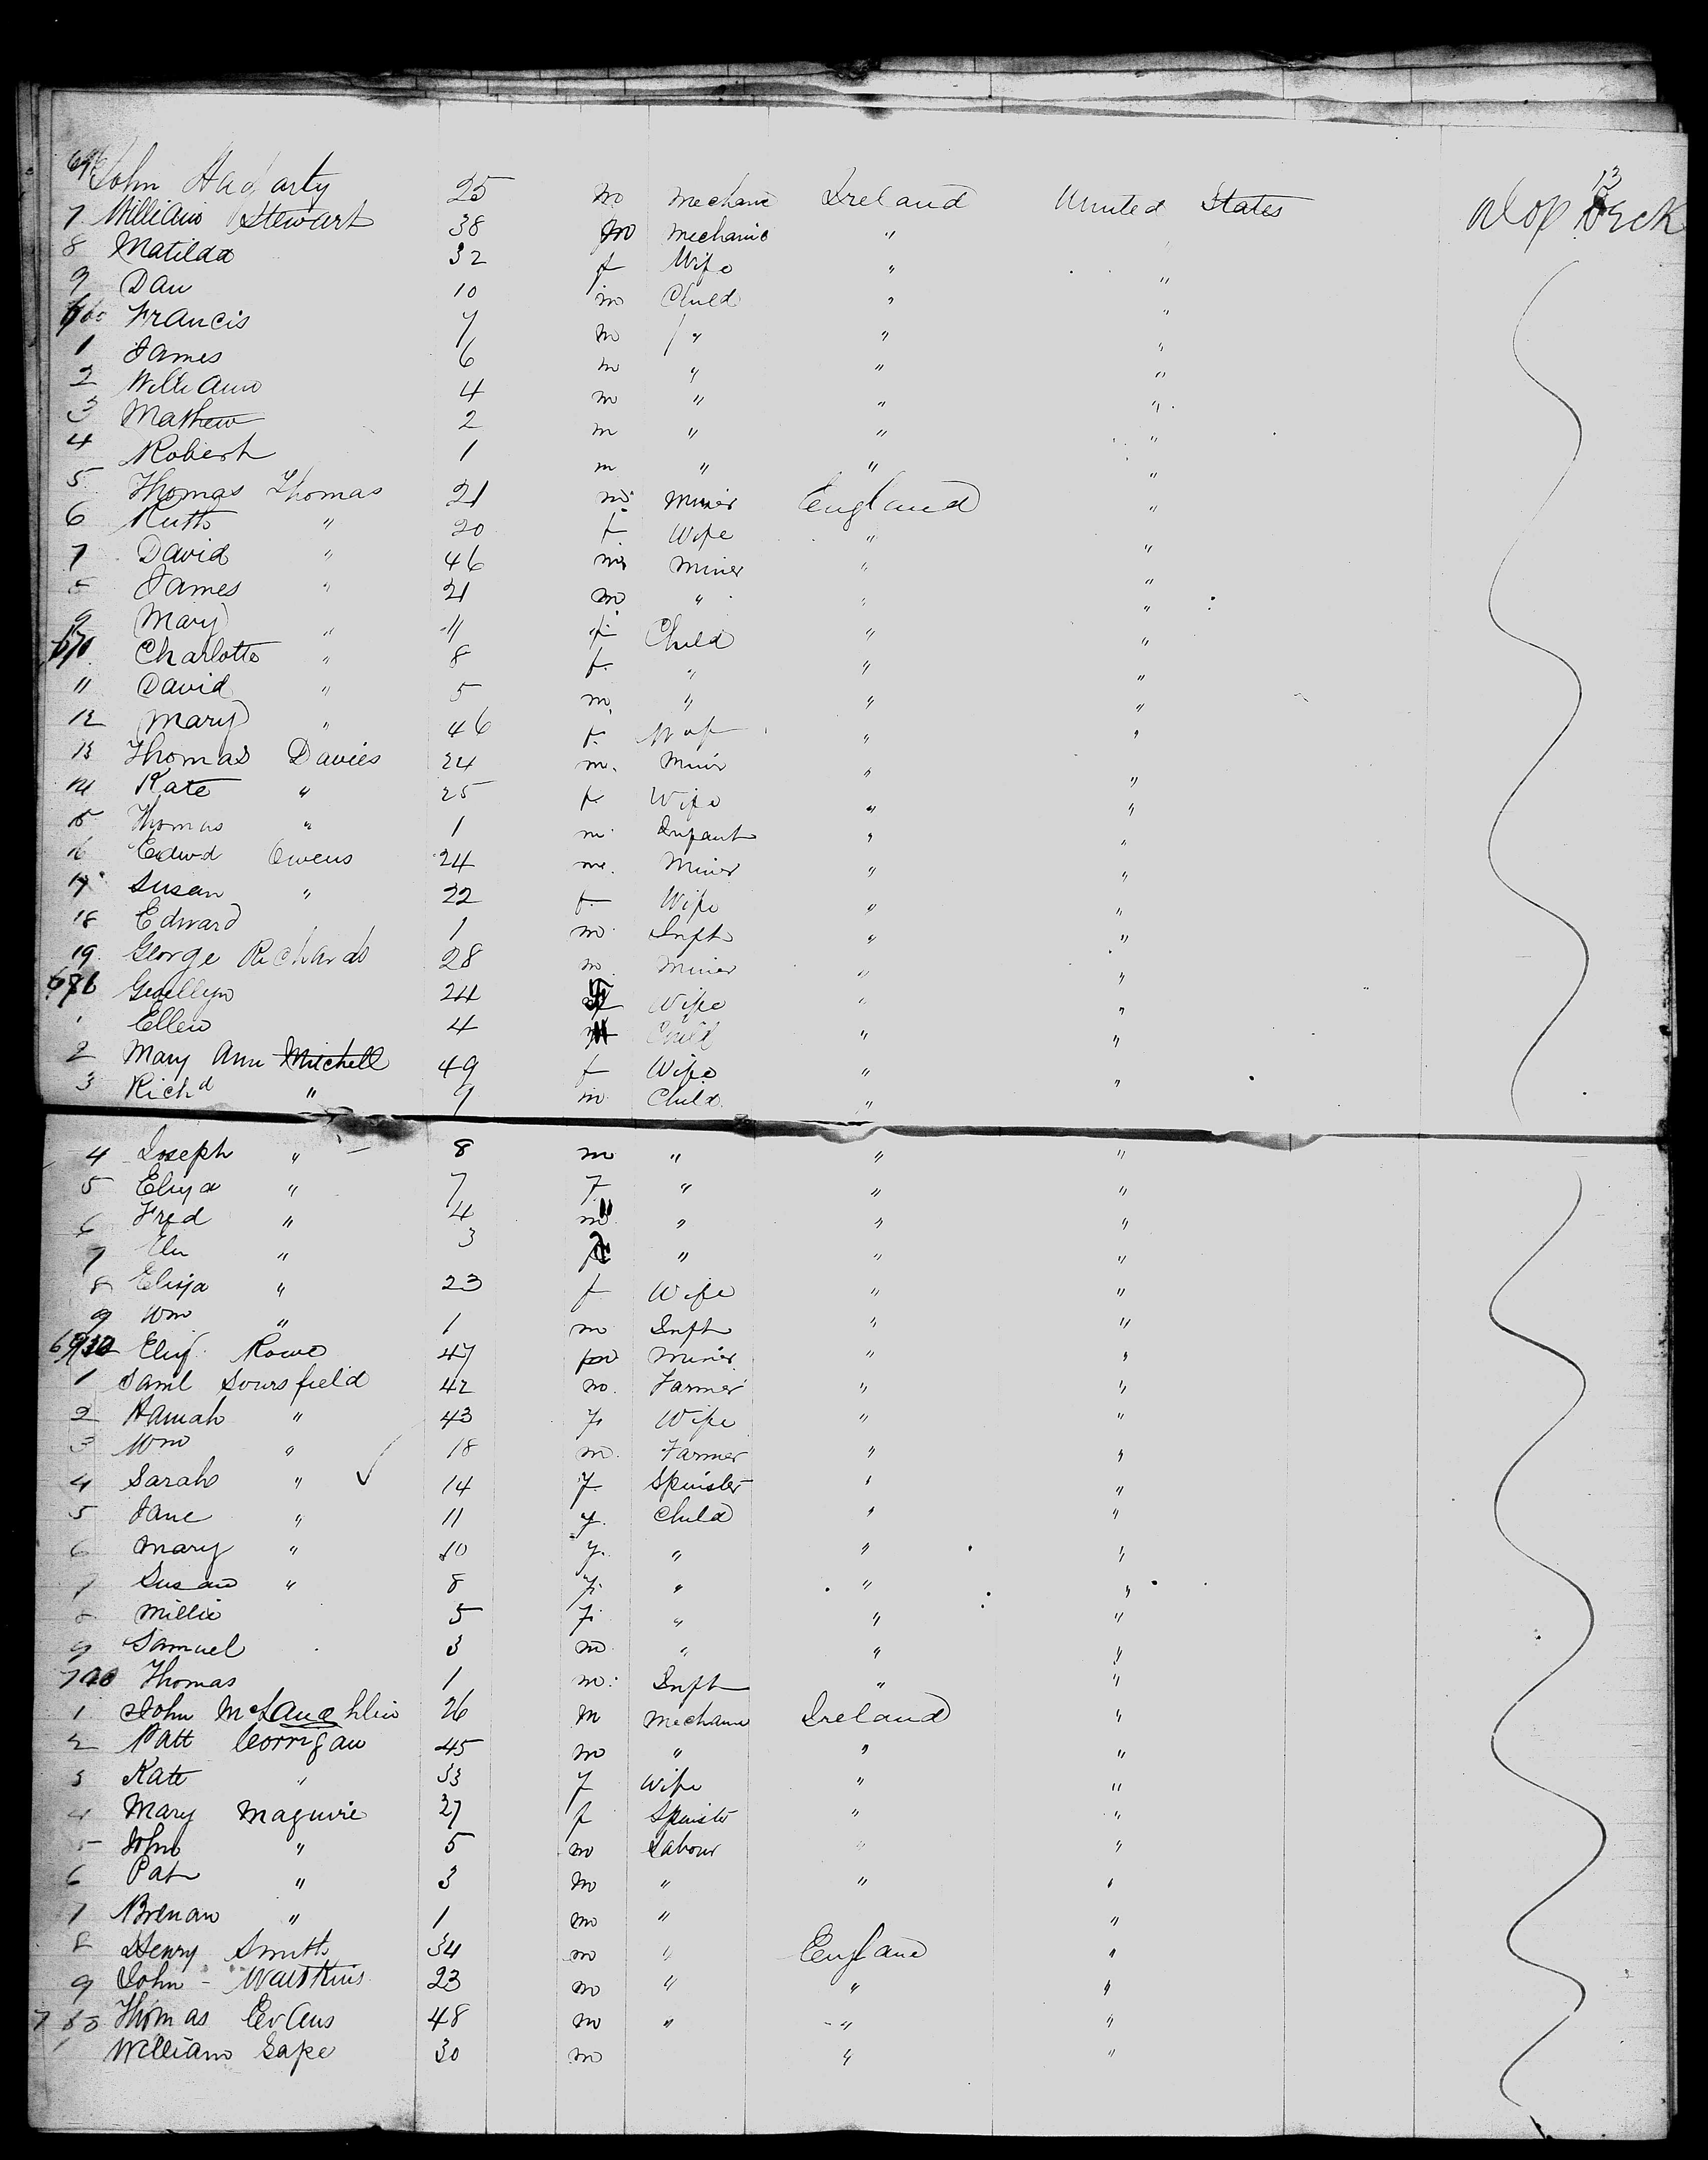 John Hagarty 25 m Mechanic Ireland United States 13
7 William Stewart 38 m Mechanic " Deck
8 Matilda 32 f Wife " "
9 Dan 10 m Child " "
Francis 7 m " " "
1 James 6 m " " "
2 William 4 m " " "
3 Mathew 2 m " " "
4 Robert 1 m " " "
5 Thomas Thomas 21 m Miner England "
6 Ruth " 20 f Wife " "
7 David " 46 m Miner " "
8 James " 21 m " " "
9 Mary " 11 f Child " "
670 Charlotte " 8 f " " "
11 David " 5 m " " "
12 Mary " 46 f Wife " "
13 Thomas Davies 24 m Miner " "
14 Kate " 25 f Wife " "
15 Thomas " 1 m Infant " "
16 Edwd Owens 24 m Miner " "
17 Susan " 22 f Wife " "
18 Edward 1 m Inft " "
19 George Richards 28 m Miner " "
24 f Wife " "
Ellen 4 Child " "
2 Mary Ann Mitchell 49 f Wife " "
3 Richd " 9 m Child "
4 Joseph " 8 m " " "
5 Eliza " 7 f " " "
6 Fred " 4 m " " "
7 " 3 " " "
8 Eliza " 23 f Wife " "
9 Wm " 1 m Inft " "
Rowe 47 m Miner " "
1 Saml Soursfield 42 m Farmer " "
2 Hannah " 43 f Wife " "
3 Wm " 18 m Farmer " "
4 Sarah " 14 f Spinster " "
5 Jane " 11 f Child " "
6 Mary " 10 f " " "
7 Susan " 8 f " " "
8 Millie 5 f " " "
9 Samuel 3 m " " "
700 Thomas 1 m Inft " "
1 John McLaughlin 26 m Mechanic Ireland "
2 Patt Corrigan 45 m " " "
3 Kate " 33 f Wife " "
4 Mary Maguire 27 f Spinster " "
5 John " 5 m Labour " "
6 Pat " 3 m " " "
7 Brenan " 1 m " "
8 Henry Smith 34 m " England "
9 John Watkins 23 m " " "
Thomas Evans 48 m " " "
1 William Gape 30 m " "